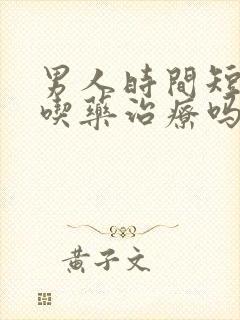 男人時間短
喫藥治療嗎
黃子文